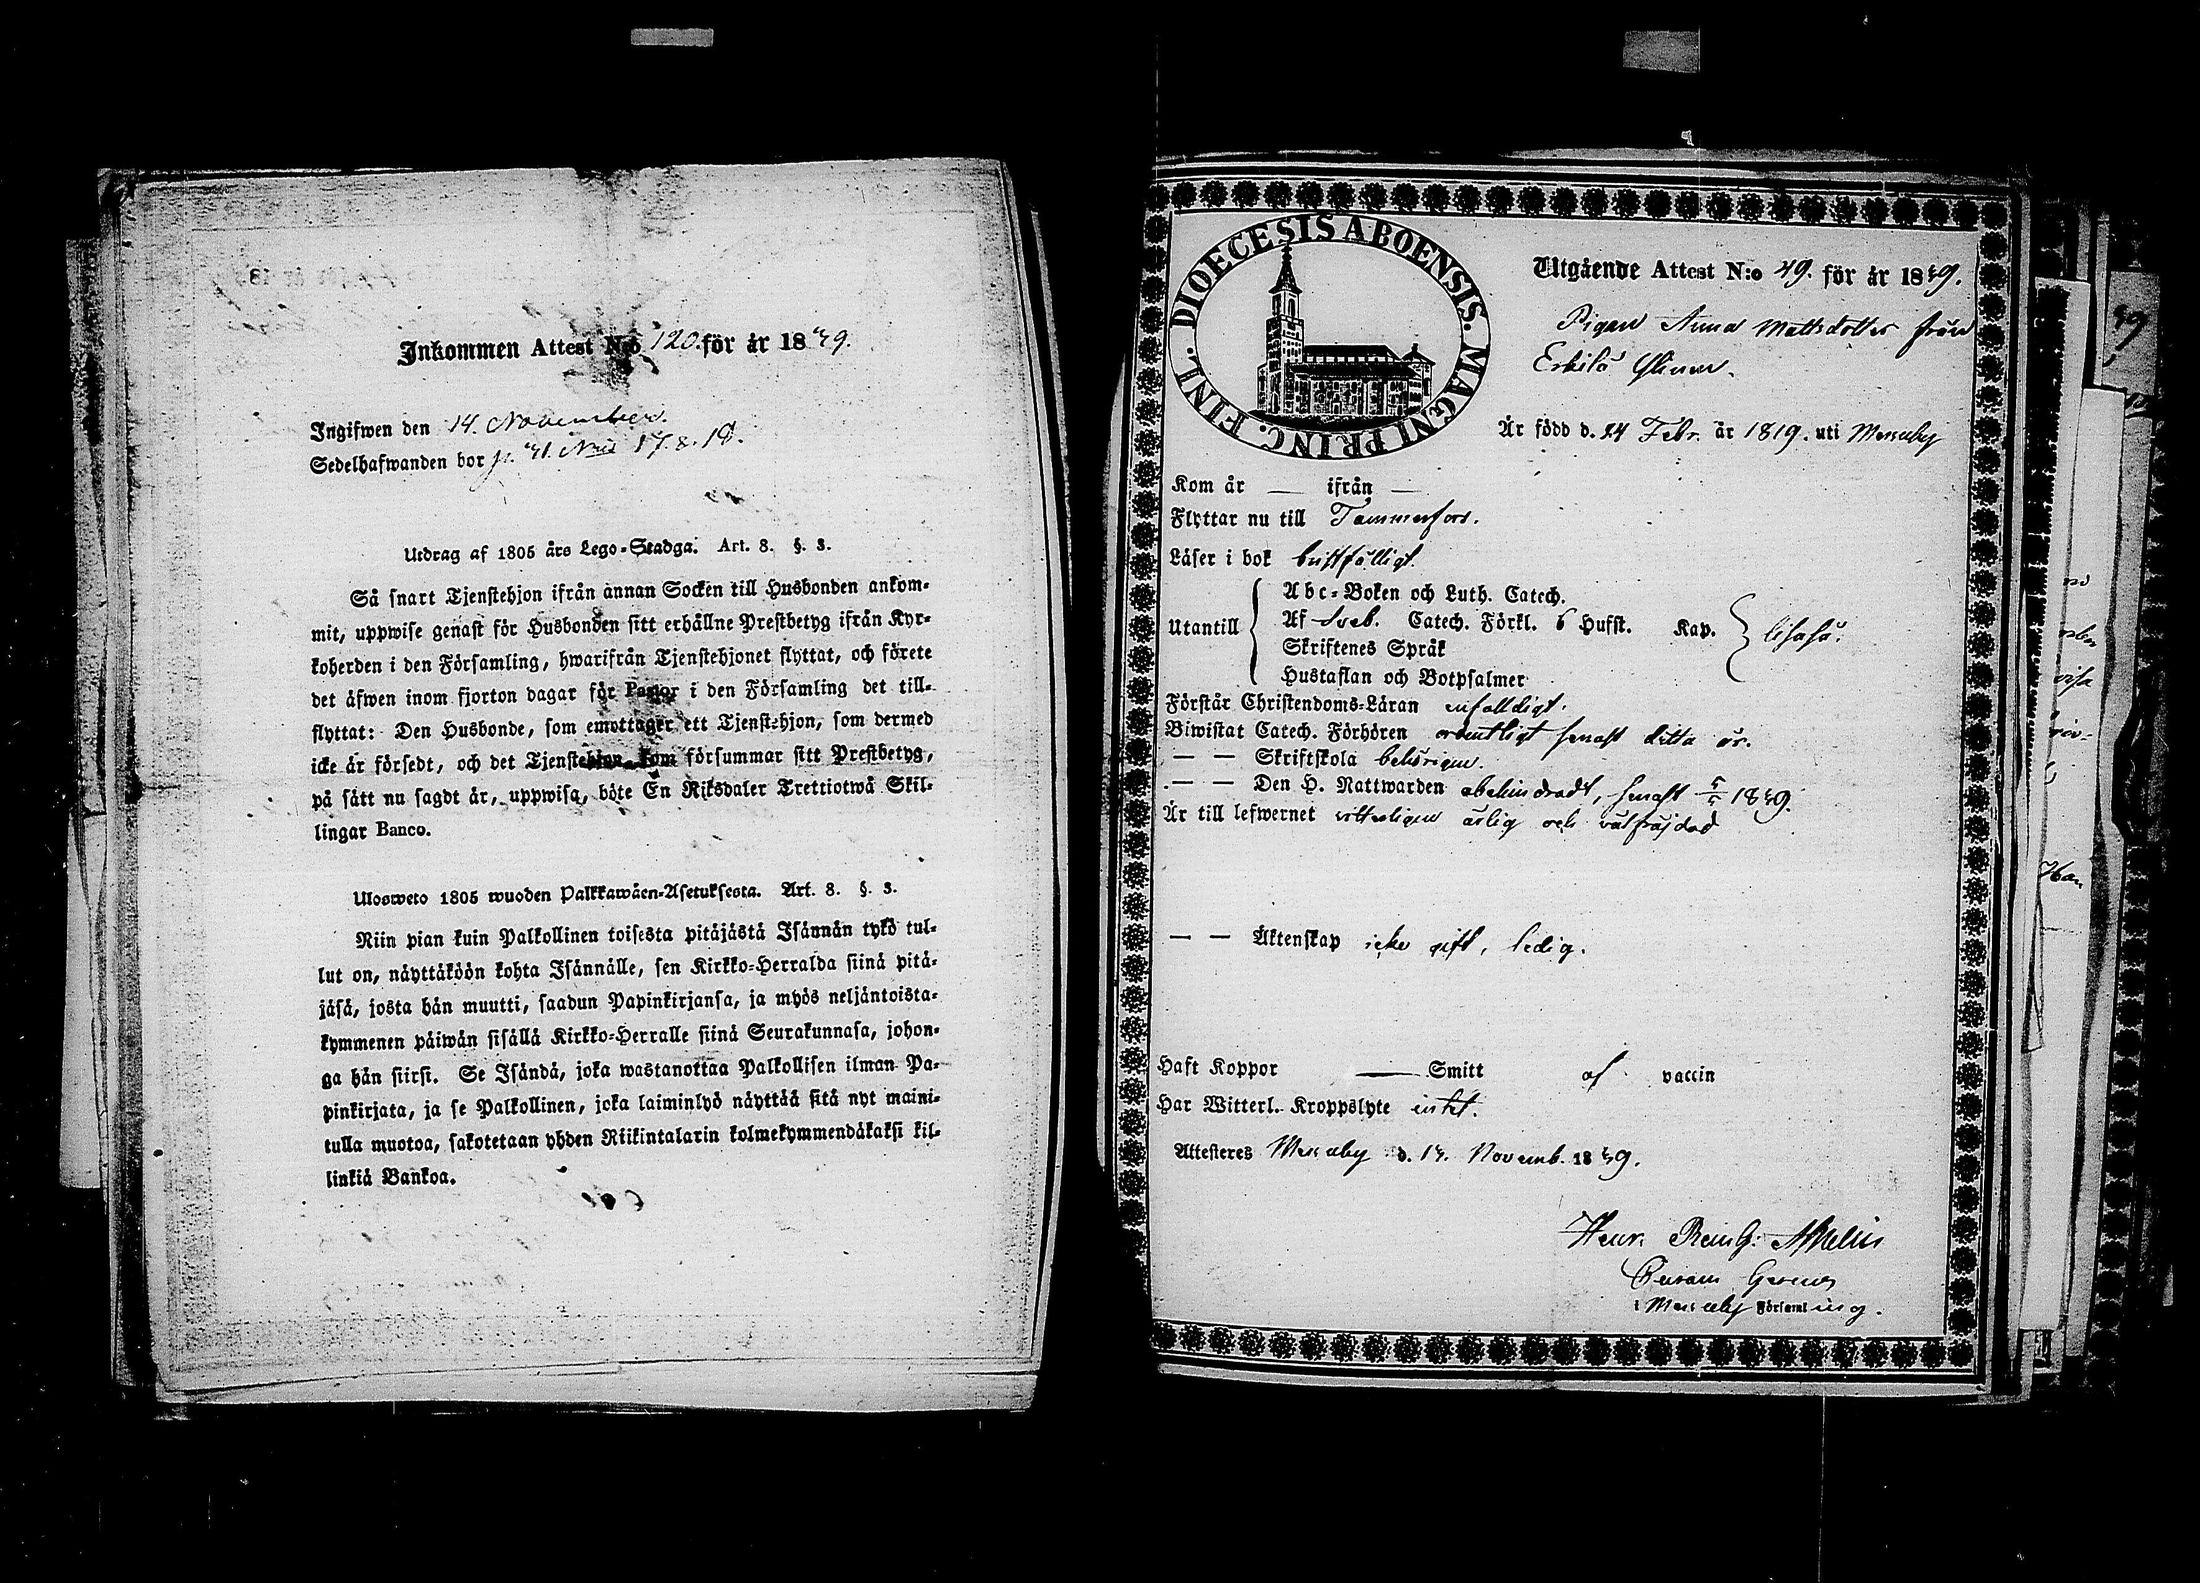 Inkommen Attest N:o 120. för år 1849.
Ingifwen den 14. November.
Sedelhafwanden bor
Utdrag af 1805 års Lego-Stadga. Art. 8. §. 3.
Så snart Tjenstehjon ifrån annan Socken till Husbonden ankom-
mit, uppwise genast för Husbonden sitt erhållne Prestbetyg ifrån Kyr-
koherden i den Församling, hwarifrån Tjenstehjonet flyttat, och förete
det äfwen inom fjorton dagar för Pastor i den Församling det till-
flyttat: Den Husbonde, som emottager ett Tjenstehjon, som dermed
icke är försedt, och det Tjenstehjon som försummar sitt Prestbetyg,
på sätt nu sagdt är, uppwisa, böte En Riksdaler Trettiotwå Skil-
lingar Banco.
Ulosweto 1805 wuoden Palkkawäen-Asetuksesta. Art. 8. §. 3.
Niin pian kuin Palkollinen toisesta pitäjästä Isännän tykö tul-
lut on, näyttäköön kohta Isännälle, sen Kirkko-Herralda siinä pitä-
jäsä, josta hän muutti, saadun Papinkirjansa, ja myös neljäntoista-
kymmenen päiwän sisällä Kirkko-Herralle siinä Seurakunnasa, johon-
ga hän siirsi. Se Isändä, joka wastanottaa Palkollisen ilman Pa-
pinkirjata, ja se Palkollinen, joka laiminlyö näyttää sitä nyt maini-
tulla muotoa, sakotetaan yhden Riikintalarin kolmekymmendäkaksi kil-
linkiä Bankoa.
DIOECESIS ABOENSIS. MAGNI PRINC. FINL.
Utgående Attest N:o 49. för år 1849.
Pigan Anna Mattsdotter från
Erkilä
Är född d. 24 Febr. år 1819. uti Messuby
Kom år — ifrån —
Flyttar nu till Tammerfors.
Läser i bok bristfälligt.
Utantill
Abc-Boken och Luth. Catech.
Af Sveb. Catech. Förkl. 6 Hufst. Kap.
Skriftenes Språk
Hustaflan och Botpsalmer
likaså.
Förstår Christendoms-Läran enfaldigt.
Biwistat Catech. Förhören ordentligt senast detta år.
— — Skriftskola behörigen.
— — Den H. Nattwarden obehindradt, senast 5/5 1849.
Är till lefwernet vitterligen ärlig och välfräjdad
— — Äktenskap icke gift, ledig.
Haft Koppor — Smitt af vaccin
Har Witterl. Kroppslyte intet.
Attesteres Messuby d. 14. Novemb. 1849.
Henr. Reinh. Akelin
i Messuby Församling.